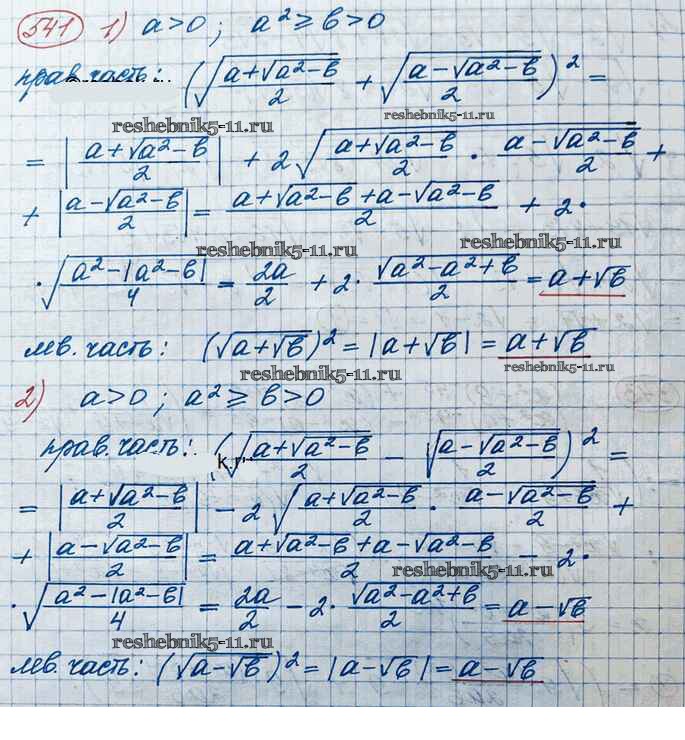 541 1) a>0 ; a² ≥ b>0
прав. часть: (√((a+√(a²-b))/2) + √((a-√(a²-b))/2))² =
reshebnik5-11.ru reshebnik5-11.ru
= |(a+√(a²-b))/2| + 2√((a+√(a²-b))/2 · (a-√(a²-b))/2) +
+ |(a-√(a²-b))/2| = (a+√(a²-b)+a-√(a²-b))/2 + 2·
reshebnik5-11.ru reshebnik5-11.ru
·√((a²-|a²-b|)/4) = 2a/2 + 2· √(a²-a²+b)/2 = a+√b
лев. часть: (√(a+√b))² = |a+√b| = a+√b
reshebnik5-11.ru reshebnik5-11.ru
2) a>0 ; a² ≥ b>0
прав. часть: (√((a+√(a²-b))/2) - √((a-√(a²-b))/2))² =
= |(a+√(a²-b))/2| - 2√((a+√(a²-b))/2 · (a-√(a²-b))/2) +
+ |(a-√(a²-b))/2| = (a+√(a²-b)+a-√(a²-b))/2 - 2·
reshebnik5-11.ru
·√((a²-|a²-b|)/4) = 2a/2 - 2· √(a²-a²+b)/2 = a-√b
reshebnik5-11.ru
лев. часть: (√(a-√b))² = |a-√b| = a-√b